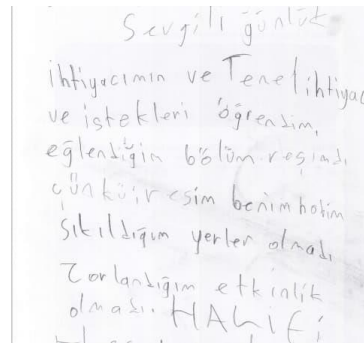 Sevgili günlük
ihtiyacımın ve Temel ihtiyaç
ve istekleri öğrendim,
eğlendiğin bölüm resimdi
çünkü resim benim hobim
sıkıldığım yerler olmadı
Zorlandığım etkinlik
olmadı. HALİFİ